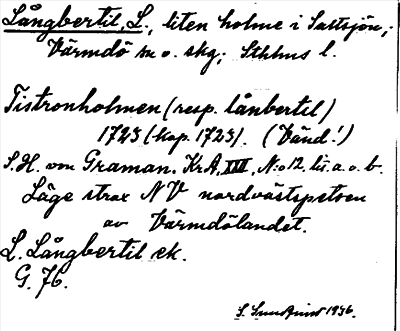 Långbertil, L., liten holme i Saltsjön,;
Värmdö sn o. skg; Sthlms l.
Tistronholmen (resp. lånbertil)
1723 (kop. 1723). (Vänd!)
S.H. von Graman. KrA, XIII, N:o 12. lit. a. o. b.
Läge strax NV nordvästspetsen
av Värmdölandet.
L. Långbertil ek.
G. 76.
S. Sundquist 1936.